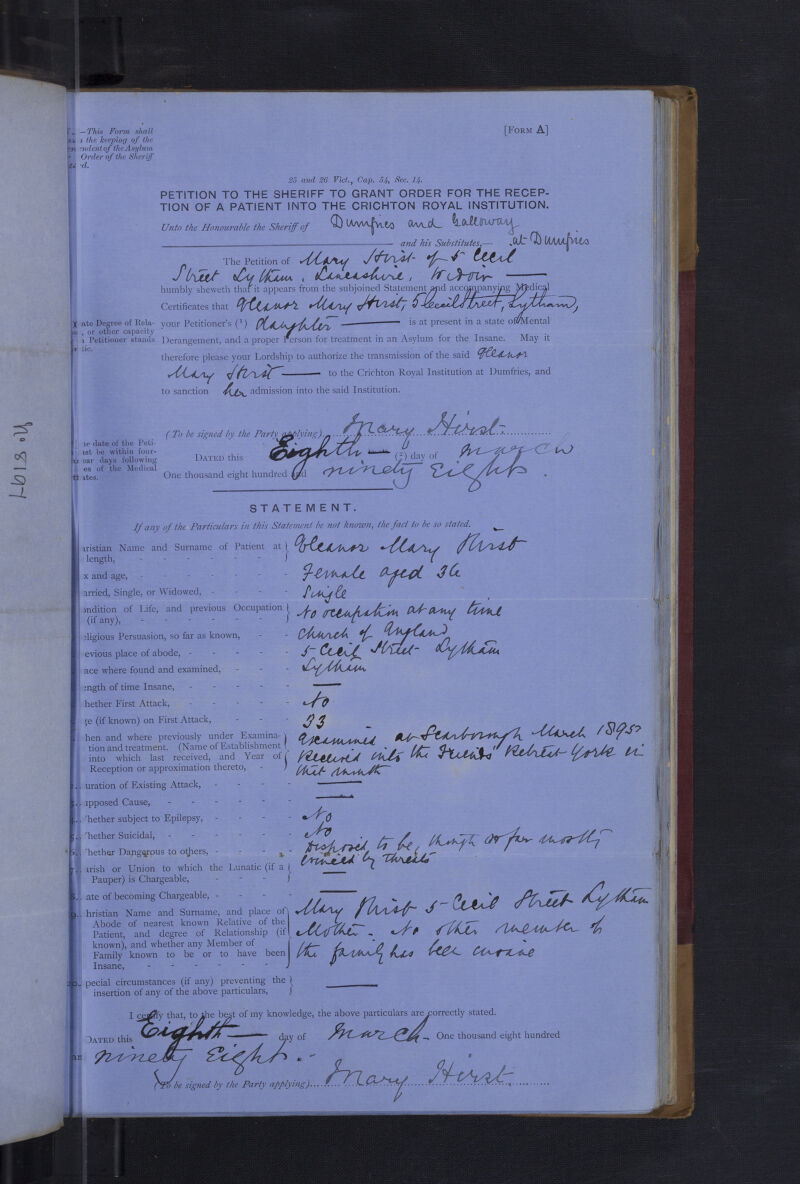 —This Form shall
the keeping of the
ndent of the Asylum
Order of the Sheriff
d.
[FORM A]
25 and 26 Vict., Cap. 54, Sec. 14.
PETITION TO THE SHERIFF TO GRANT ORDER FOR THE RECEP-
TION OF A PATIENT INTO THE CRICHTON ROYAL INSTITUTION.
Unto the Honourable the Sheriff of Dumfries and Galloway
and his Substitutes,— at Dumfries
The Petition of Mary Hirst of 5 Cecil
Street Lytham, Lancashire, Widow
humbly sheweth that it appears from the subjoined Statement and accompanying Medical
Certificates that Eleanor Mary Hirst, 5 Cecil Street, Lytham,
ate Degree of Rela-
, or other capacity
Petitioner stands
tic.
your Petitioner's (1) daughter is at present in a state of Mental
Derangement, and a proper Person for treatment in an Asylum for the Insane. May it
therefore please your Lordship to authorize the transmission of the said Eleanor
Mary Hirst to the Crichton Royal Institution at Dumfries, and
to sanction her admission into the said Institution.
(To be signed by the Party applying) Mary Hirst.
e date of the Peti-
st be within four-
ar days following
es of the Medical
ates.
DATED this Eighth (2) day of March
One thousand eight hundred and ninety Eight.
No 8197
STATEMENT.
If any of the Particulars in this Statement be not known, the fact to be so stated.
ristian Name and Surname of Patient at length, Eleanor Mary Hirst
x and age, Female aged 36
arried, Single, or Widowed, Single
ondition of Life, and previous Occupation (if any), No occupation at any time
eligious Persuasion, so far as known, Church of England
evious place of abode, 5 Cecil Street Lytham
ace where found and examined, Lytham
ength of time Insane,
hether First Attack, No
ge (if known) on First Attack, 33
hen and where previously under Examina- Examined at Scarborough March 1895
tion and treatment. (Name of Establishment
into which last received, and Year of Received into the Friends' Retreat York in
Reception or approximation thereto, that month
uration of Existing Attack,
upposed Cause,
hether subject to Epilepsy, No
hether Suicidal, No
hether Dangerous to others, Disposed to be, though so far mostly
evinced by threats
arish or Union to which the Lunatic (if a
Pauper) is Chargeable,
ate of becoming Chargeable,
hristian Name and Surname, and place of Mary Hirst 5 Cecil Street Lytham
Abode of nearest known Relative of the
Patient, and degree of Relationship (if Mother. No other member of
known), and whether any Member of
Family known to be or to have been the family has been insane
Insane,
pecial circumstances (if any) preventing the
insertion of any of the above particulars,
I certify that, to the best of my knowledge, the above particulars are correctly stated.
DATED this Eighth day of March. One thousand eight hundred
an ninety Eight.
(To be signed by the Party applying) Mary Hirst.